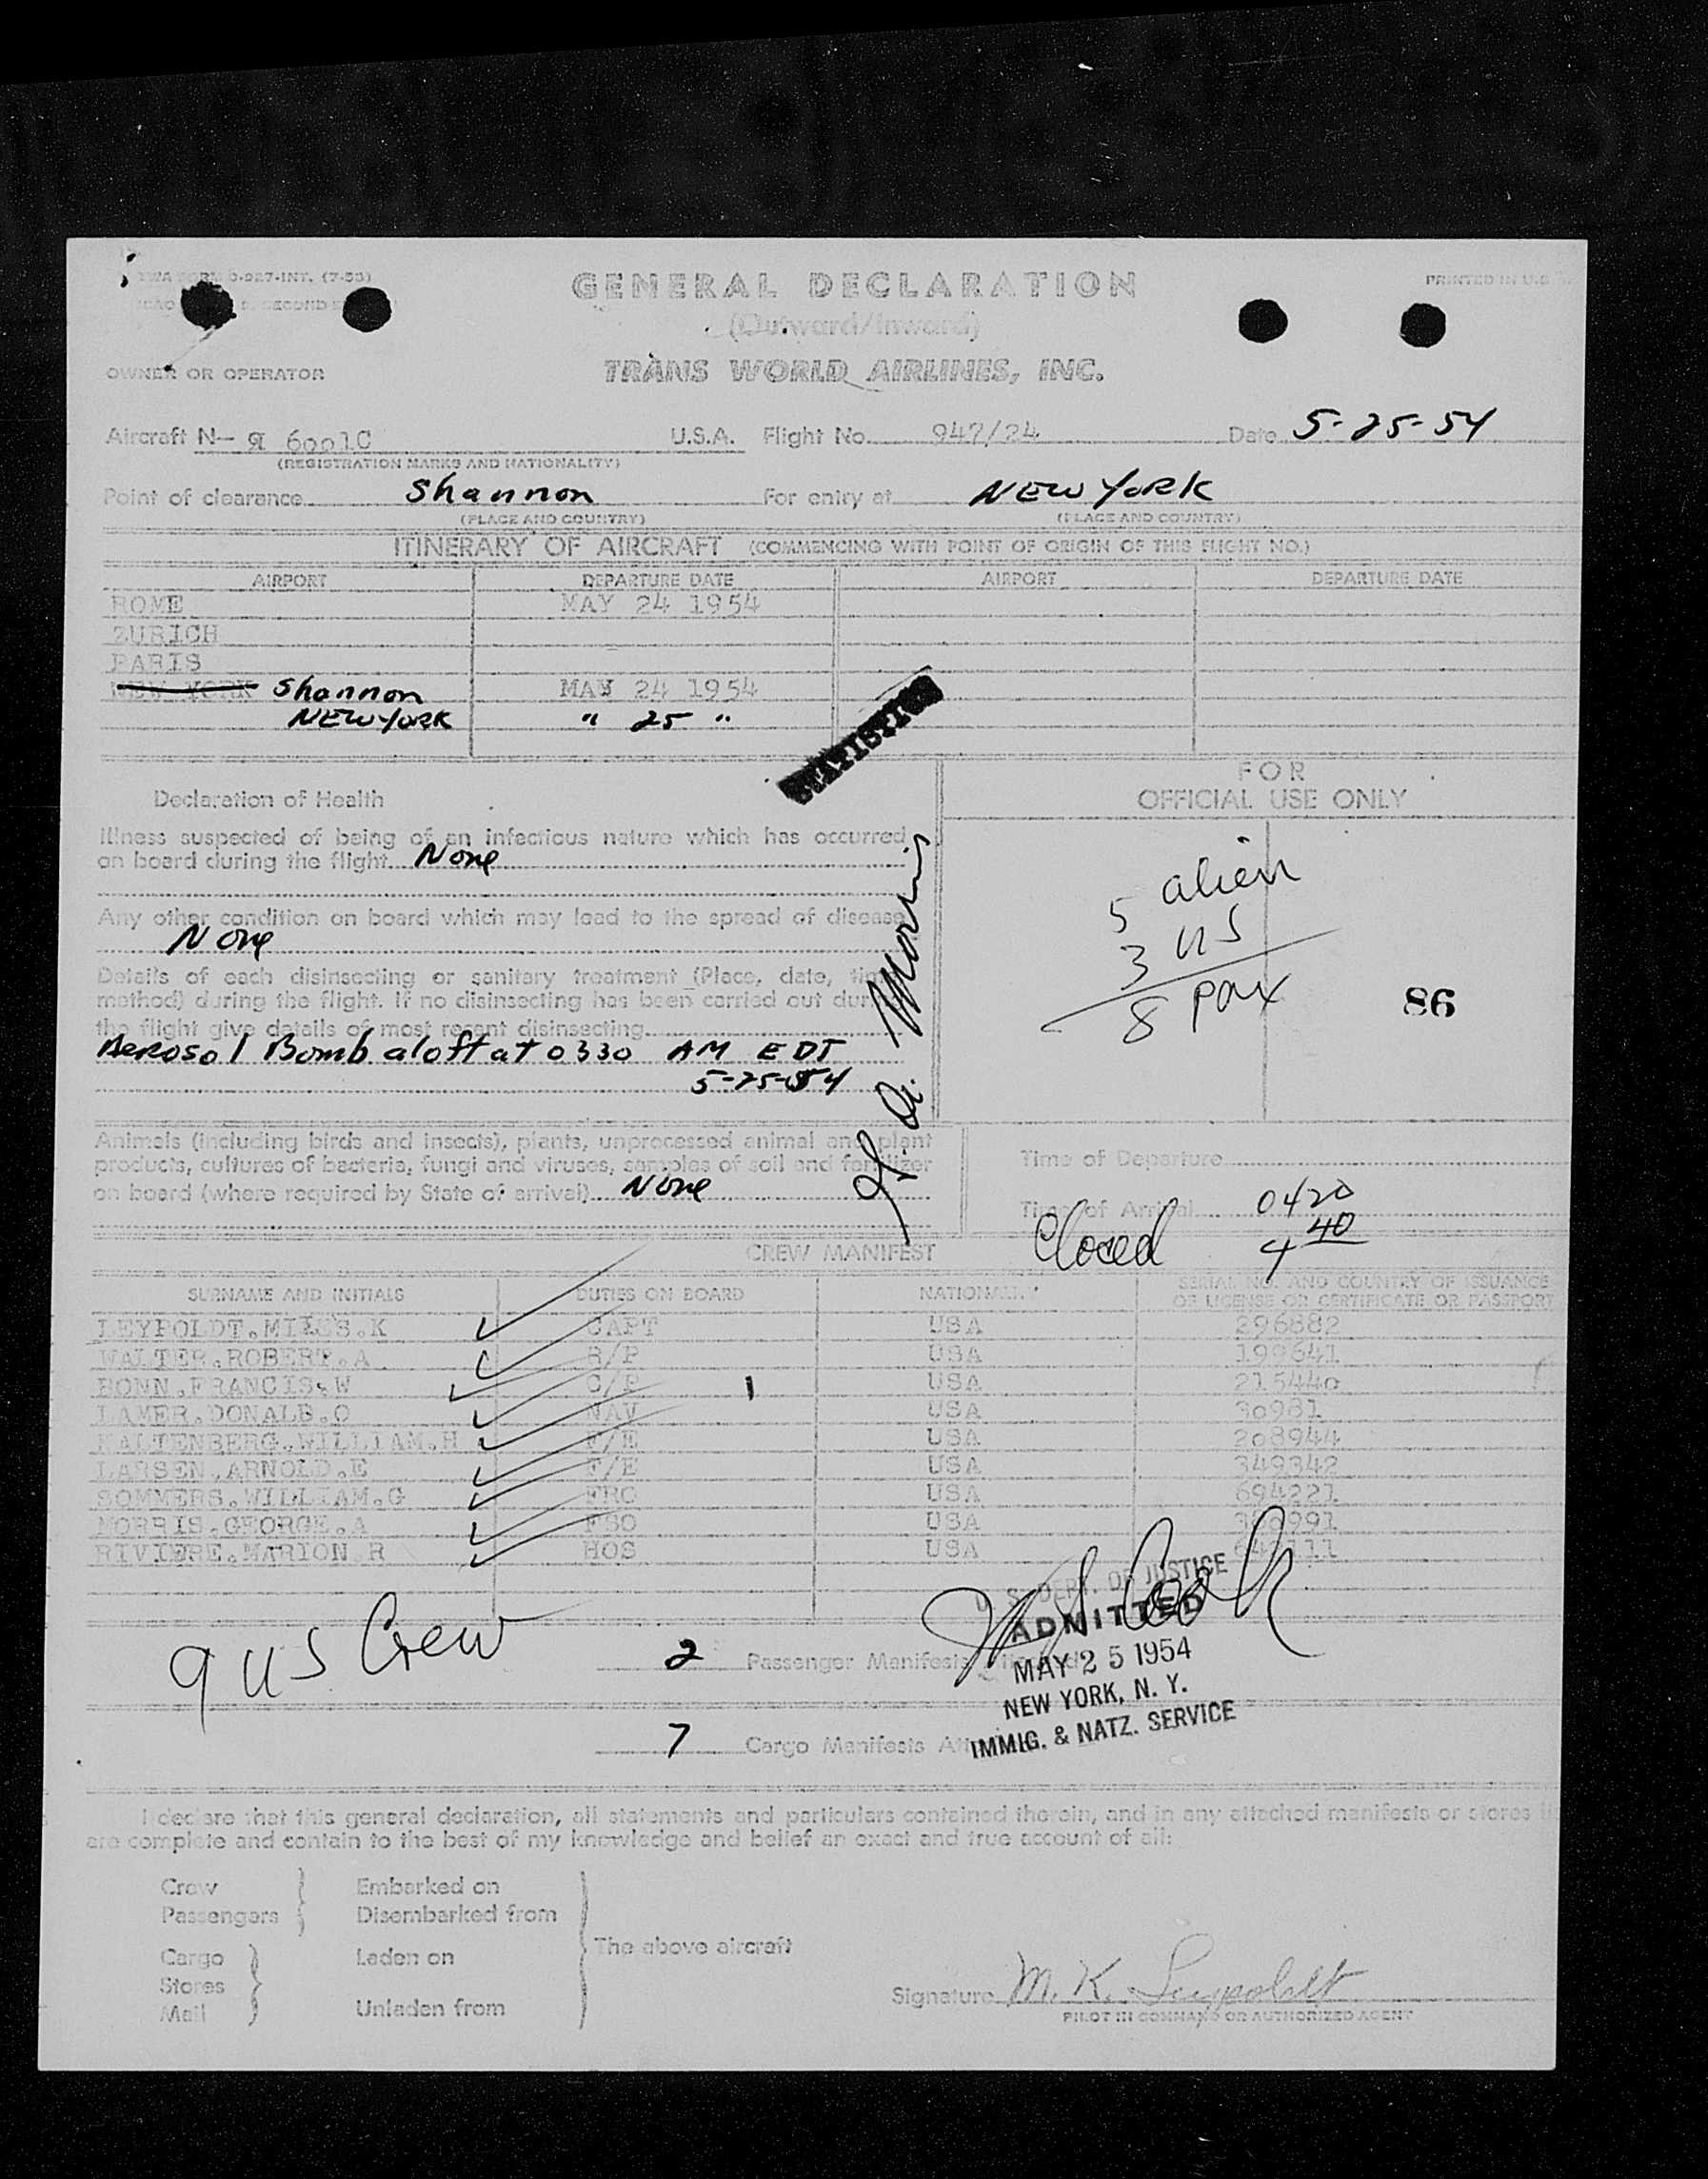 TWA FORM O-927-INT. (7-53)
PRINTED IN U.S.
SECOND
GENERAL DECLARATION
(Outward/Inward)
OWNER OR OPERATOR
TRANS WORLD AIRLINES, INC.
Aircraft N- 6001C U.S.A. Flight No. 947/24 Date 5-25-54
(REGISTRATION MARKS AND NATIONALITY)
Point of clearance Shannon For entry at NEW YORK
(PLACE AND COUNTRY) (PLACE AND COUNTRY)
ITINERARY OF AIRCRAFT (COMMENCING WITH POINT OF ORIGIN OF THIS FLIGHT NO.)
AIRPORT DEPARTURE DATE AIRPORT DEPARTURE DATE
ROME MAY 24 1954
ZURICH
PARIS
NEW YORK Shannon MAY 24 1954
NEW YORK " 25 "
STATISTICS
FOR
OFFICIAL USE ONLY
Declaration of Health
Illness suspected of being of an infectious nature which has occurred
on board during the flight None
Any other condition on board which may lead to the spread of disease
None
Details of each disinsecting or sanitary treatment (Place, date, time
method) during the flight. If no disinsecting has been carried out dur
the flight give details of most recent disinsecting
Aerosol Bomb aloft at 0330 AM EDT
5-25-54
G. A. Morris
5 alien
3 US
8 pax
86
Animals (including birds and insects), plants, unprocessed animal and plant
products, cultures of bacteria, fungi and viruses, samples of soil and fertilizer
on board (where required by State of arrival) None
Time of Departure
Time of Arrival 0420
Closed 4 40
CREW MANIFEST
SURNAME AND INITIALS DUTIES ON BOARD NATIONALITY SERIAL NO. AND COUNTRY OF ISSUANCE
OF LICENSE OR CERTIFICATE OR PASSPORT
LEYPOLDT.MILES.K CAPT USA 296882
WALTER.ROBERT.A R/P USA 199641
BONN.FRANCIS.W C/P 1 USA 215440
LAMER.DONALD.O NAV USA 30981
KALTENBERG.WILLIAM.H F/E USA 208944
LARSEN.ARNOLD.E F/E USA 349342
SOMMERS.WILLIAM.G FRO USA 694221
MORRIS.GEORGE.A FSO USA
RIVIERE.MARION R HOS USA
9 US Crew
2 Passenger Manifests
7 Cargo Manifests
U. S. DEPT. OF JUSTICE
ADMITTED
MAY 25 1954
NEW YORK, N. Y.
IMMIG. & NATZ. SERVICE
I declare that this general declaration, all statements and particulars contained therein, and in any attached manifests or stores li
are complete and contain to the best of my knowledge and belief an exact and true account of all:
Crew Embarked on
Passengers Disembarked from
The above aircraft
Cargo Laden on
Stores
Mail Unladen from
Signature M. K. Leypoldt
PILOT IN COMMAND OR AUTHORIZED AGENT